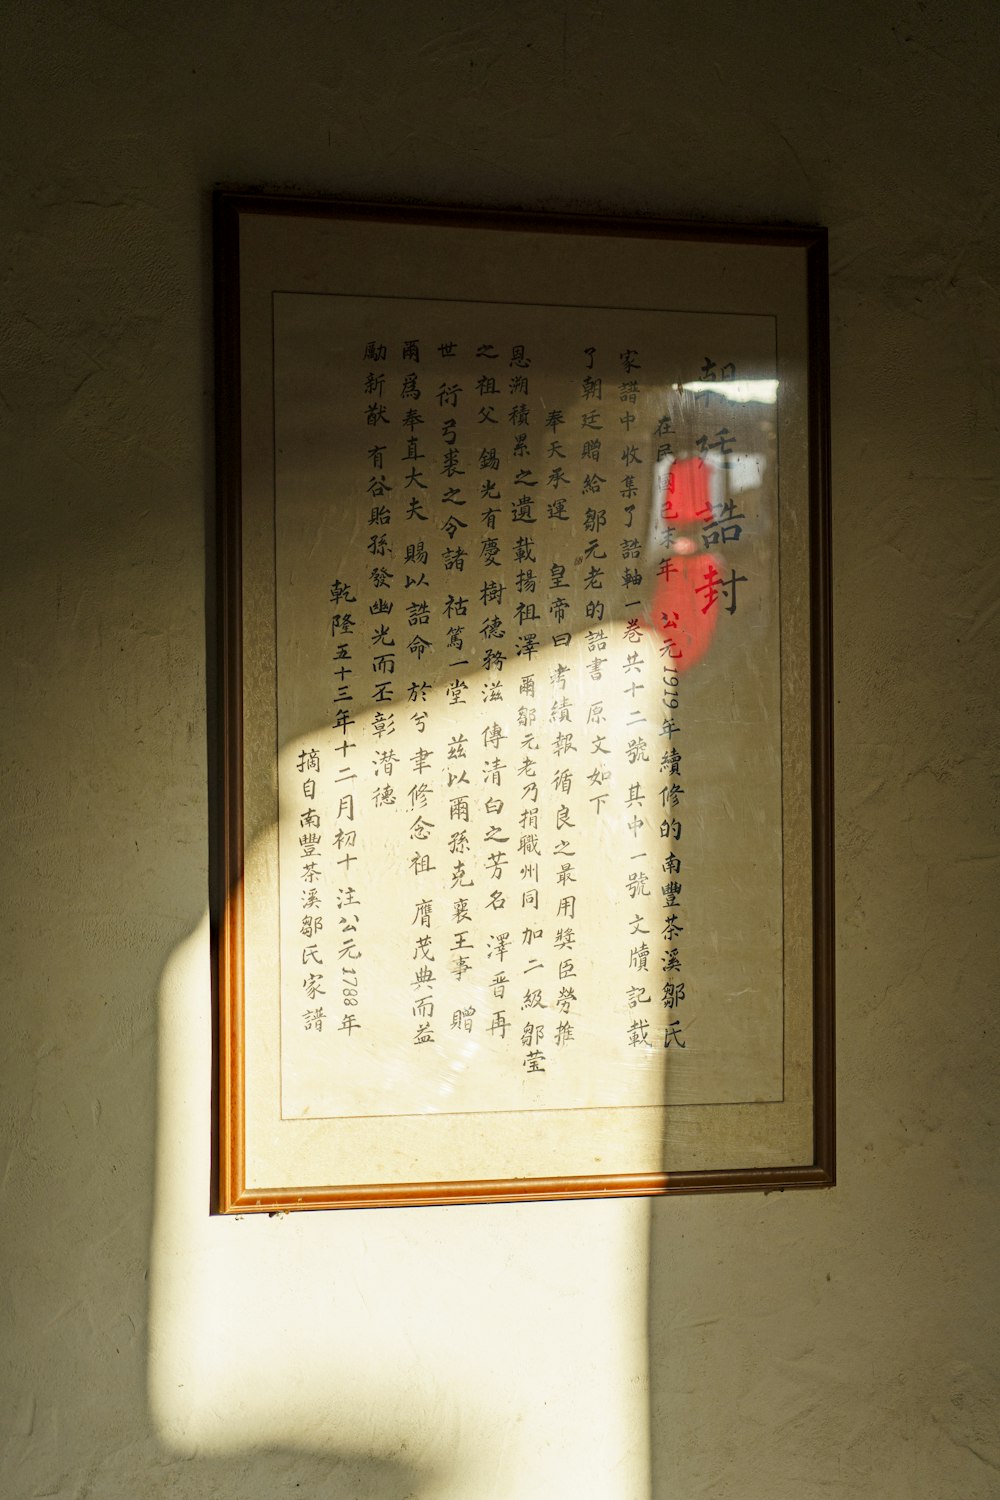 朝廷誥封
在民國己未年 公元1919年續修的南豐茶溪鄒氏
家譜中收集了誥軸一卷共十二號 其中一號文牘記載
了朝廷贈給鄒元老的誥書 原文如下
奉天承運 皇帝曰 考績報循良之最用獎臣勞推
恩溯積累之遺載揚祖澤 爾鄒元老乃捐職州同 加二級鄒莹
之祖父 錫光有慶 樹德務滋 傳清白之芳名 澤晋再
世 衍弓裘之令諸 祜篤一堂 茲以爾孫克襄王事 贈
爾爲奉直大夫 賜以誥命 於兮 聿修念祖 膺茂典而益
勵新猷 有谷貽孫發幽光而丕彰潜德
乾隆五十三年十二月初十 注公元1788年
摘自南豐茶溪鄒氏家譜